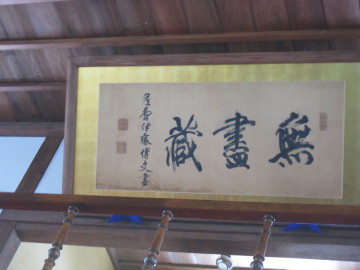 無盡藏
春畝伊藤博文書